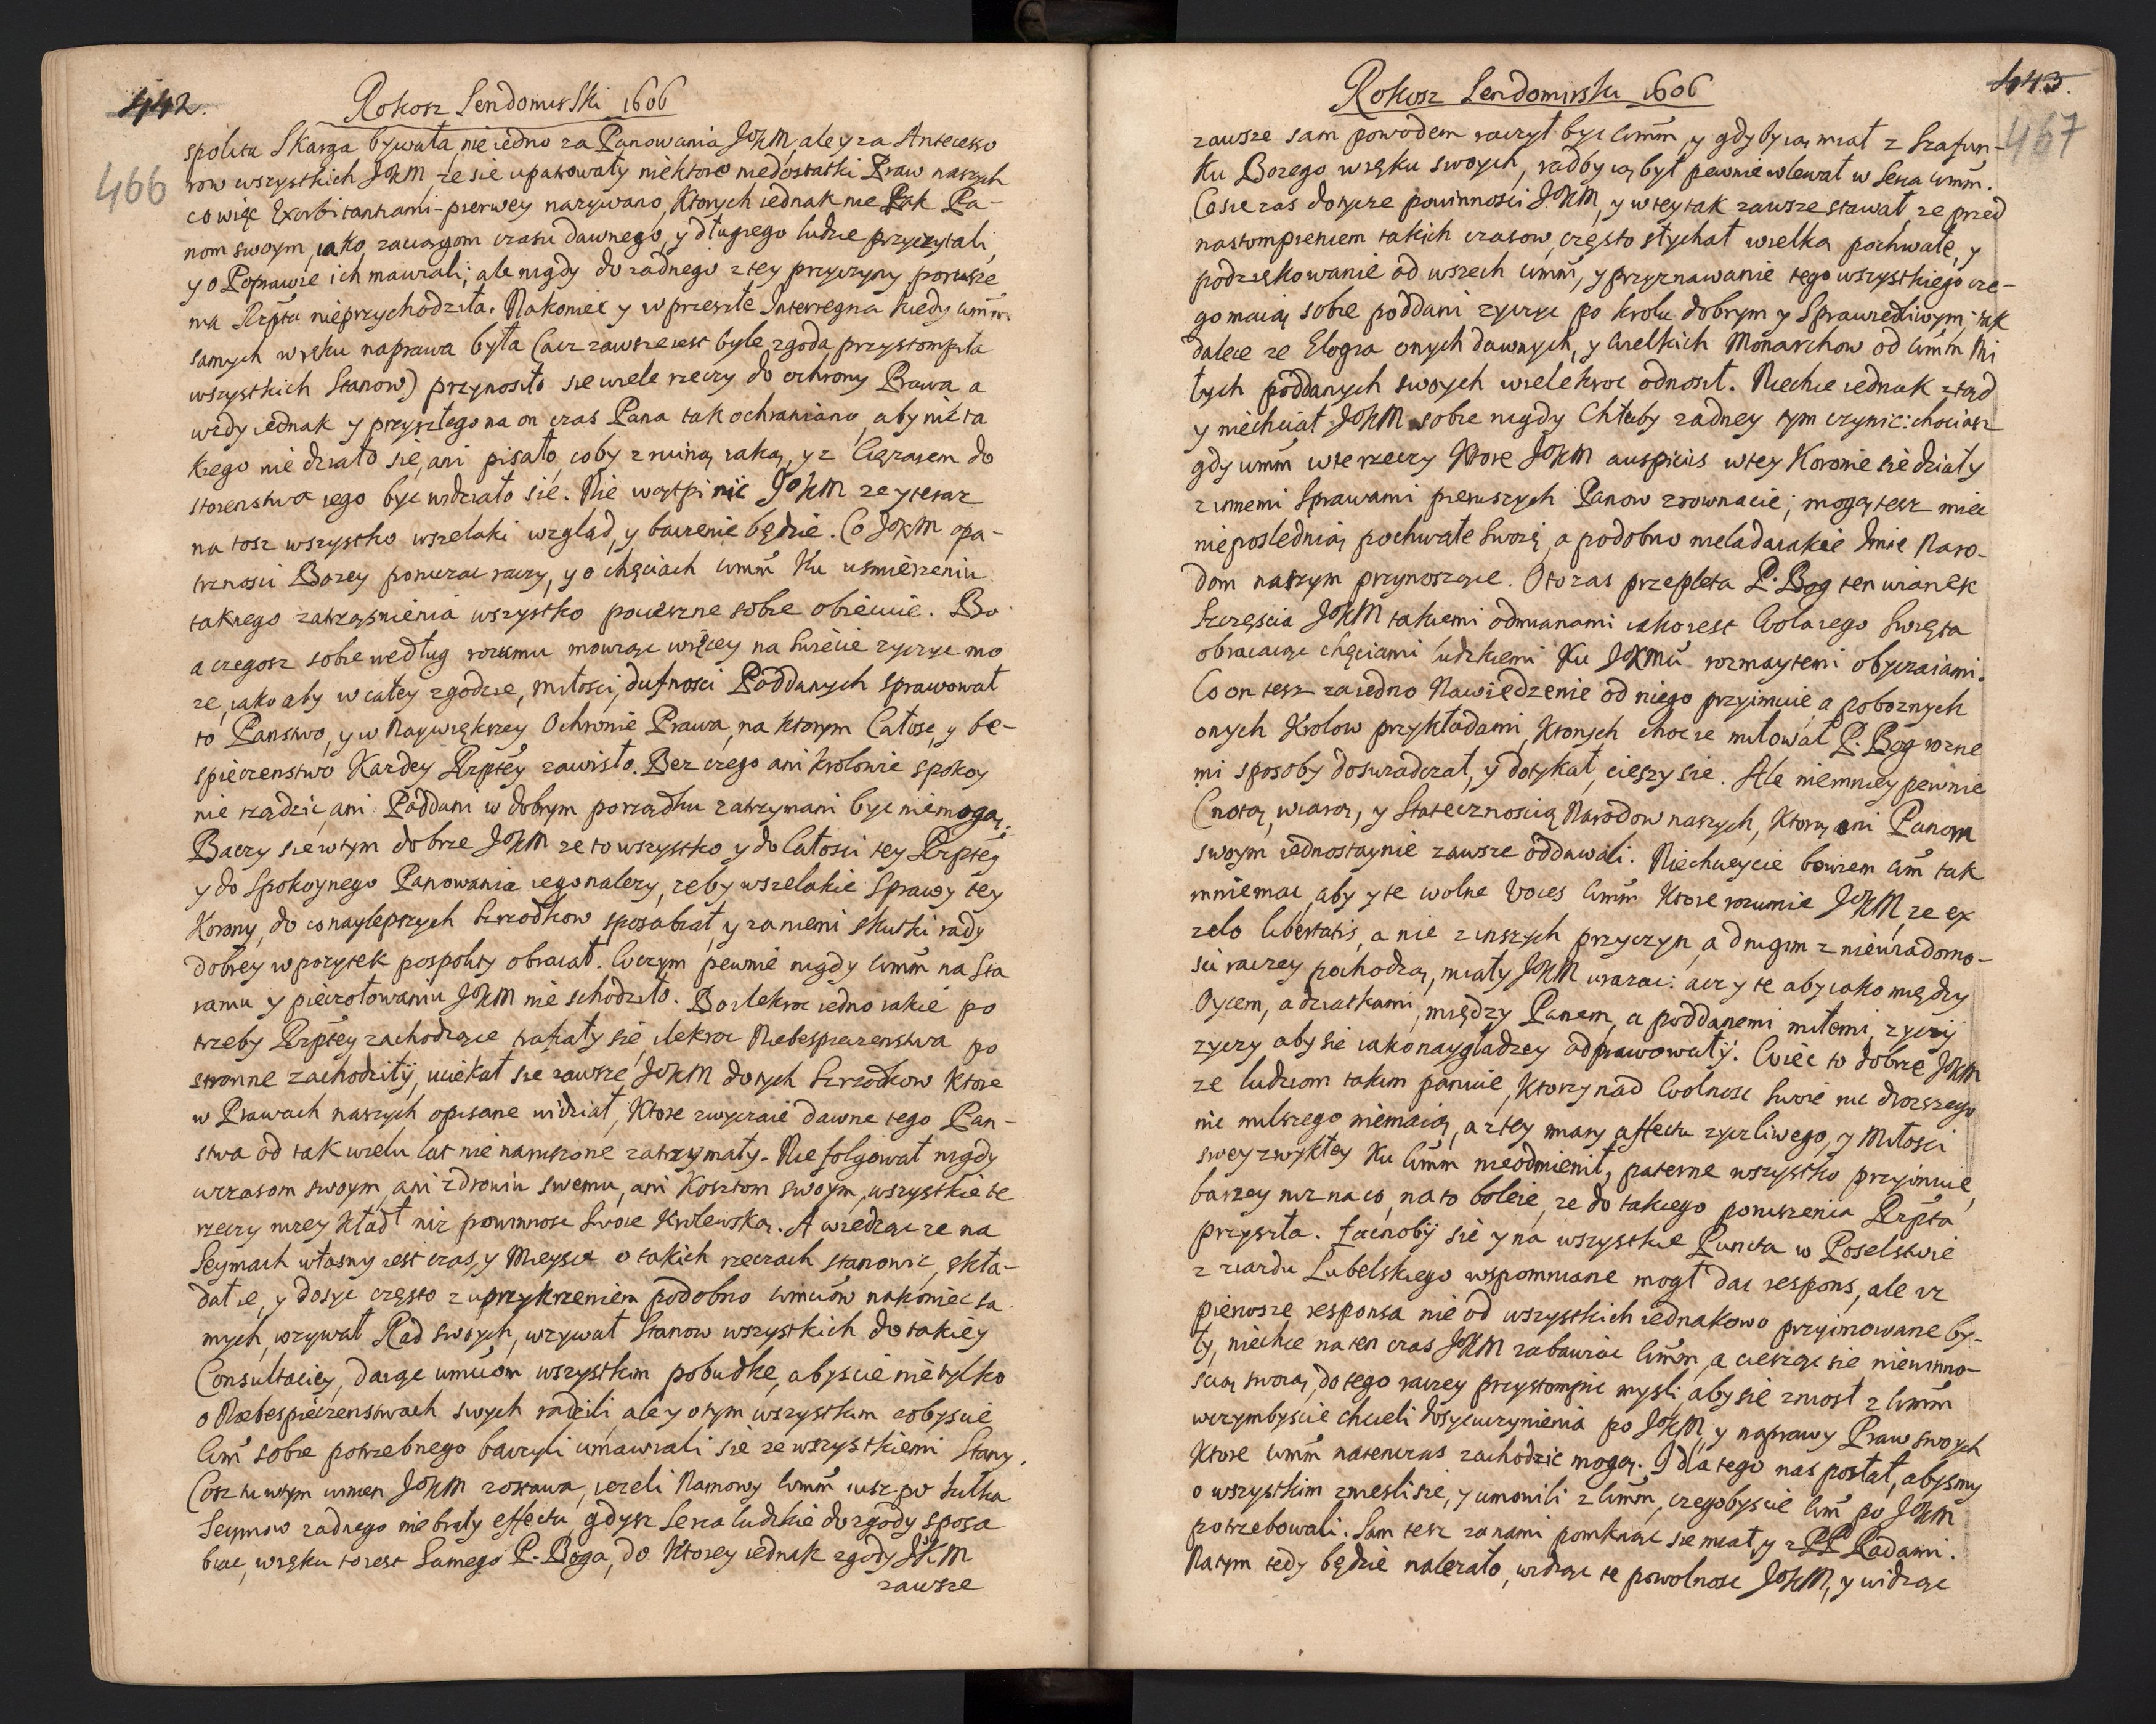 442.
Rokosz Sendomirski 1606
466
spolita Skarga bywała, nie iedno za Panowania JoKM, ale y za Anteceso
row wszystkich JoKM, że sie upatrowały niektore niedostatki Praw naszych
co więc Exorbitantiami pierwey nazywano, Ktorych iednak nie tak Pa-
nom swoym iako zaciągom czasu dawnego, y długiego ludzie przyczytali,
y o Poprawie ich mawiali; ale nigdy do żadnego z tey przyczyny porusze
nia Rzpta nieprzychodziła. Nakoniec y w przeszłe Interregna kiedy wmm
samych w ręku naprawa była (acz zawsze iest byle zgoda przystompiła
wszystkich Stanow) przynosiło sie wiele rzeczy do ochrony Prawa a
wzdy iednak y przyszłego na on czas Pana tak ochraniano, aby nic ta
kiego nie działo się, ani pisało, coby z winą iaką, y z Ciężarem do
stoienstwa iego byc widziało się. Nie wątpi nic JoKM ze y teraz
na tosz wszystko wszelaki wzgląd, y baczenie będzie. Co JoKM opa-
trznosci Bozey poruczac raczy, y o chęciach wmm Ku usmierzeniu
takiego zatrząsnienia wszystko pocieszne sobie obiecuie. Bo
a czegosz sobie według rozumu mowiąc więcey na Swiecie zyczyc mo
ze, iako aby w całey zgodzie, miłosci, dufnosci Poddanych sprawował
to Panstwo, y w Naywiękrzey Ochronie Prawa, na ktorym Całosc, y be-
spieczenstwo Kazdey Rzptey zawisło. Bez czego ani krolowie spokoy
nie rządzic, ani Poddani w dobrym porządku zatrzymani byc niemogą.
Baczy sie w tym dobrze JoKM ze to wszystko y do Całosci tey Rzptey
y do Spokoynego Panowania iego nalezy, zeby wszelakie Sprawy tey
Korony, do co naylepszych Srzodkow sposabiał, y za niemi skutki rady
dobrey w pozytek pospolity obracał. W czym pewnie nigdy wmm na Sta
raniu y pieczołowaniu JoKM nie schodziło. Bo ilekroc iedno iakie po
trzeby Rzptey zachodzące trafiały się, ilekroc Niebespieczenstwa po
stronne zachodziły, uciekał sie zawsze JoKM do tych Srzodkow Ktore
w Prawach naszych opisane widział, Ktore zwyczaie dawne tego Pan-
stwa od tak wielu lat nie naruszone zatrzymały. Nie folgował nigdy
wczasom swoym, ani zdrowiu swemu, ani Kosztom swoym, wszystkie te
rzeczy nizey Kładł niz powinnosc Swoie Krolewską. A wiedząc ze na
Seymach własny iest czas, y Mieysce o takich rzeczach stanowic, skła-
dał ie, y dosyc często z uprzykrzeniem podobno wmciow nakoniec sa
mych, wzywał Rad swoych, wzywał Stanow wszystkich do takiey
Consultaciey, daiąc wmciom wszystkim pobudkę, abyscie nie tylko
o Niebespieczenstwach swych radzili, ale y o tym wszystkim cobyscie
wm sobie potrzebnego baczyli umawiali się ze wszystkiemi Stany.
Cosz tu w tym winien JoKM zostawa, iezeli Namowy wmm iusz po kilka
Seymow zadnego nie brały effectu, gdysz Serca ludzkie do zgody sposa
biac, w ręku to iest Samego P. Boga, do Ktorey iednak zgody JoKM
zawsze
443.
Rokosz Sendomirski 1606
467
zawsze sam powodem raczył byc wmm, y gdyby ią miał z Szafun-
ku Bozego w ręku swoych, radby ią był pewnie wlewał w Serca wmm.
Co sie zas dotycze powinnosci JoKM, y w tey tak zawsze stawał, ze przed
nastompieniem takich czasow, często słychał wielka pochwałę, y
podziękowanie od wszech wmm, y przyznawanie tego wszystkiego cze-
go maią sobie poddani zyczyc po krolu dobrym y Sprawiedliwym, tak
dalece ze Elogia onych dawnych, y wielkich Monarchow od wmm Mi
łych poddanych swoych wielekroc odnosił. Niechce iednak ztąd
y niechciał JoKM sobie nigdy Chłuby zadney tym czynic: chociasz
gdy wmm wse rzeczy Ktore JoKM auspiciis w tey Koronie sie działy
z innemi Sprawami pierwszych Panow zrownacie; mogą tesz miec
nieposlednią pochwałe Swoię, a podobno nieladaiakie Imie Naro-
dom naszym przynoszące. Oto zas przeplata P. Bog ten wianek
Szczęscia JoKM takiemi odmianami iako iest Wola iego Swięta
obracaiąc chęciami ludzkiemi Ku JoKMci rozmaytemi obyczaiami.
Co on tesz za iedno Nawiedzenie od niego przyimuie, a poboznych
onych Krolow przykładami, Ktorych choc ie miłował P. Bog rozne
mi sposoby doswiadczał, y dotykał, cieszy sie. Ale niemniey pewnie
Cnotą, wiarą, y Statecznoscią Narodow naszych, Ktorą oni Panom
swoym iednostaynie zawsze oddawali. Niechcieycie bowiem wm tak
mniemac, aby y te wolne Voces wmm Ktore rozumie JoKM, ze ex
zelo libertatis, a nie z inszych przyczyn, a drugim z niewiadomo-
sci raczey pochodzą, miały JoKM urazac: acz y te aby iako między
Oycem, a dziatkami, między Panem, a poddanemi miłemi, zyczy
zyczy aby sie iako naygładzey odprawowały. Wiec to dobrze JoKM
ze ludziom takim panuie, Ktorzy nad Wolnosc Swoie nic drozszego
nic milszego niemaią, a z tey miary affectu zyczliwego, y Miłosci
swey zwykłey Ku wmm nieodmienił, paterne wszystko przyimuie,
barzey niz na co, na to boleie, ze do takiego poruszenia Rzpta
przyszła. Łacnoby sie y na wszystkie Puncta w Poselstwie
z ziazdu Lubelskiego wspomniane mogł dac respons, ale iz
pierwsze responsa nie od wszystkich iednakowo przyimowane by-
ły, niechce na ten czas JoKM zabawiac wmm, a ciesząc sie niewinno-
scią swoią, do tego raczey przystompic mysli, aby sie zniosł z wmm
w czymbyscie chcieli dosyc uczynienia po JoKM, y naprawy Praw swoych
Ktore wmm natenczas zachodzic mogą. I dla tego nas posłał, abysmy
o wszystkim zniesli sie, y umowili z wmm, czegobyscie wm po JoKM
potrzebowali. Sam tesz za nami pomknąc sie miał y z PP Radami.
Na tym tedy będzie nalezało, widząc te powolnosc JoKM, y widząc